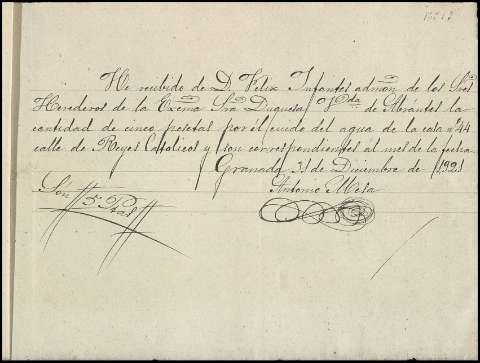 He recibido de D. Felix Infantes admon de los Sres
Herederos de la Exma Sra Duquesa Vda de Abrantes la
cantidad de cinco pesetas por el cuido del agua de la casa nº 44
calle de Reyes Catolicos y son correspondientes al mes de la fecha
Granada 31 de Diciembre de 1921
Antonio Mesa
Son 5 Ptas